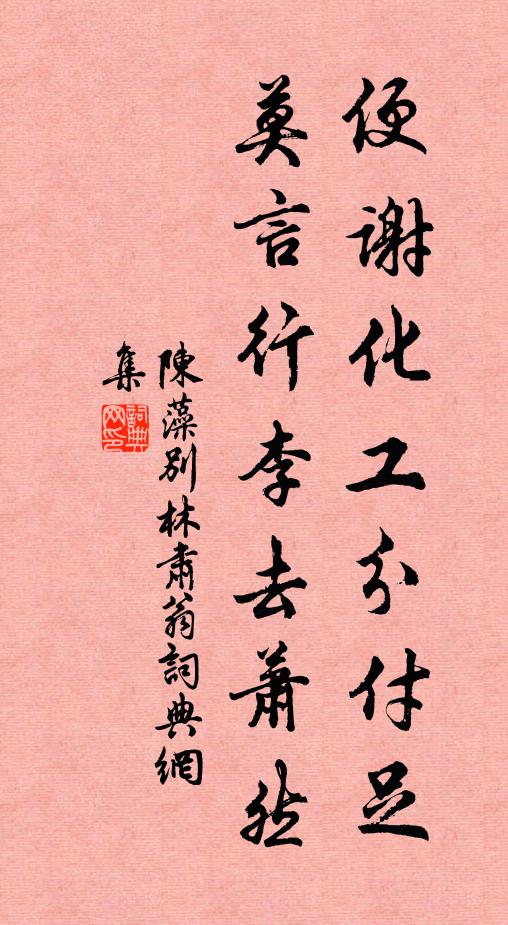 便謝化工分付足
莫言行李去蕭然
陳藻別林肅翁詞典網
集
詞典
网印